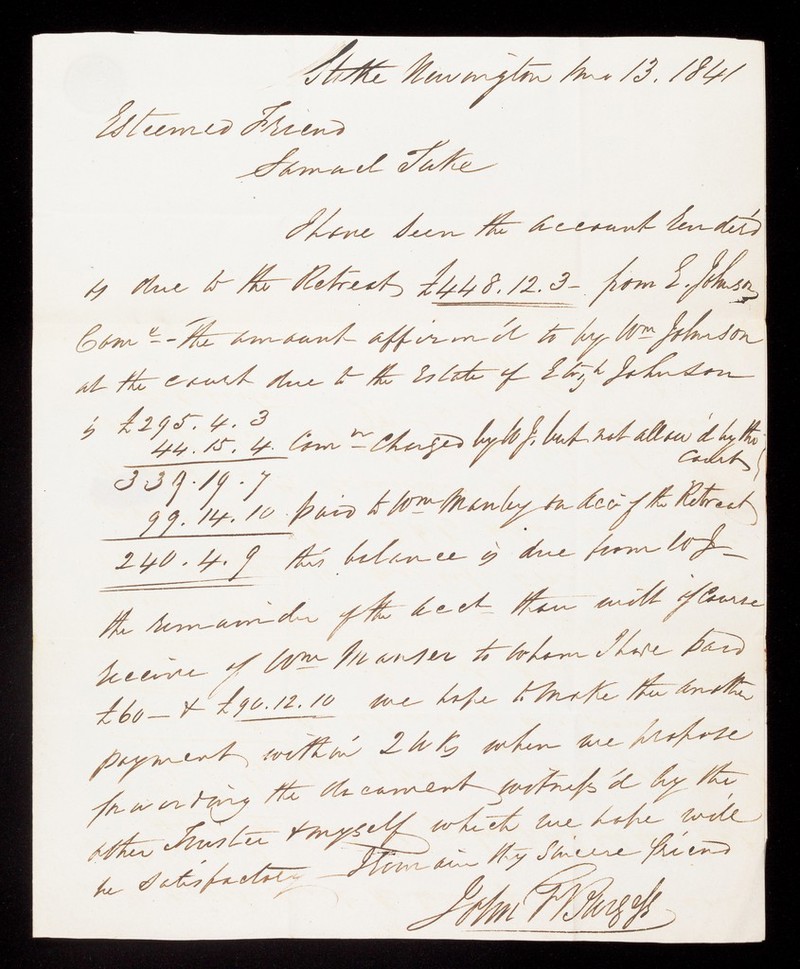 Stoke Newington mo 13. 1841
Esteemed Friend
Samuel Tuke
I have seen the account render'd
as due to the Retreat £448.12.3 - from E. Johnson
Comee - the amount affirm'd to by Wm Johnson
at the court due to the Estate of Elizh Johnson
is £295.4.3
44.15.4. Comn charged by WJ. but not allow'd by the
Court
339.19.7
99.14.10 paid to Wm Manley on Acct of the Retreat
240.4.9 this balance is due from WJ -
the remainder of the acct thou will of course
receive of Wm Manser to whom I have paid
£60 - & £90.12.10 we hope to make thee another
payment within 2 wks when we propose
forwarding the document, witness'd by the
other Trustee & myself which we hope will
be satisfactory I remain thy sincere friend
John F Burgess